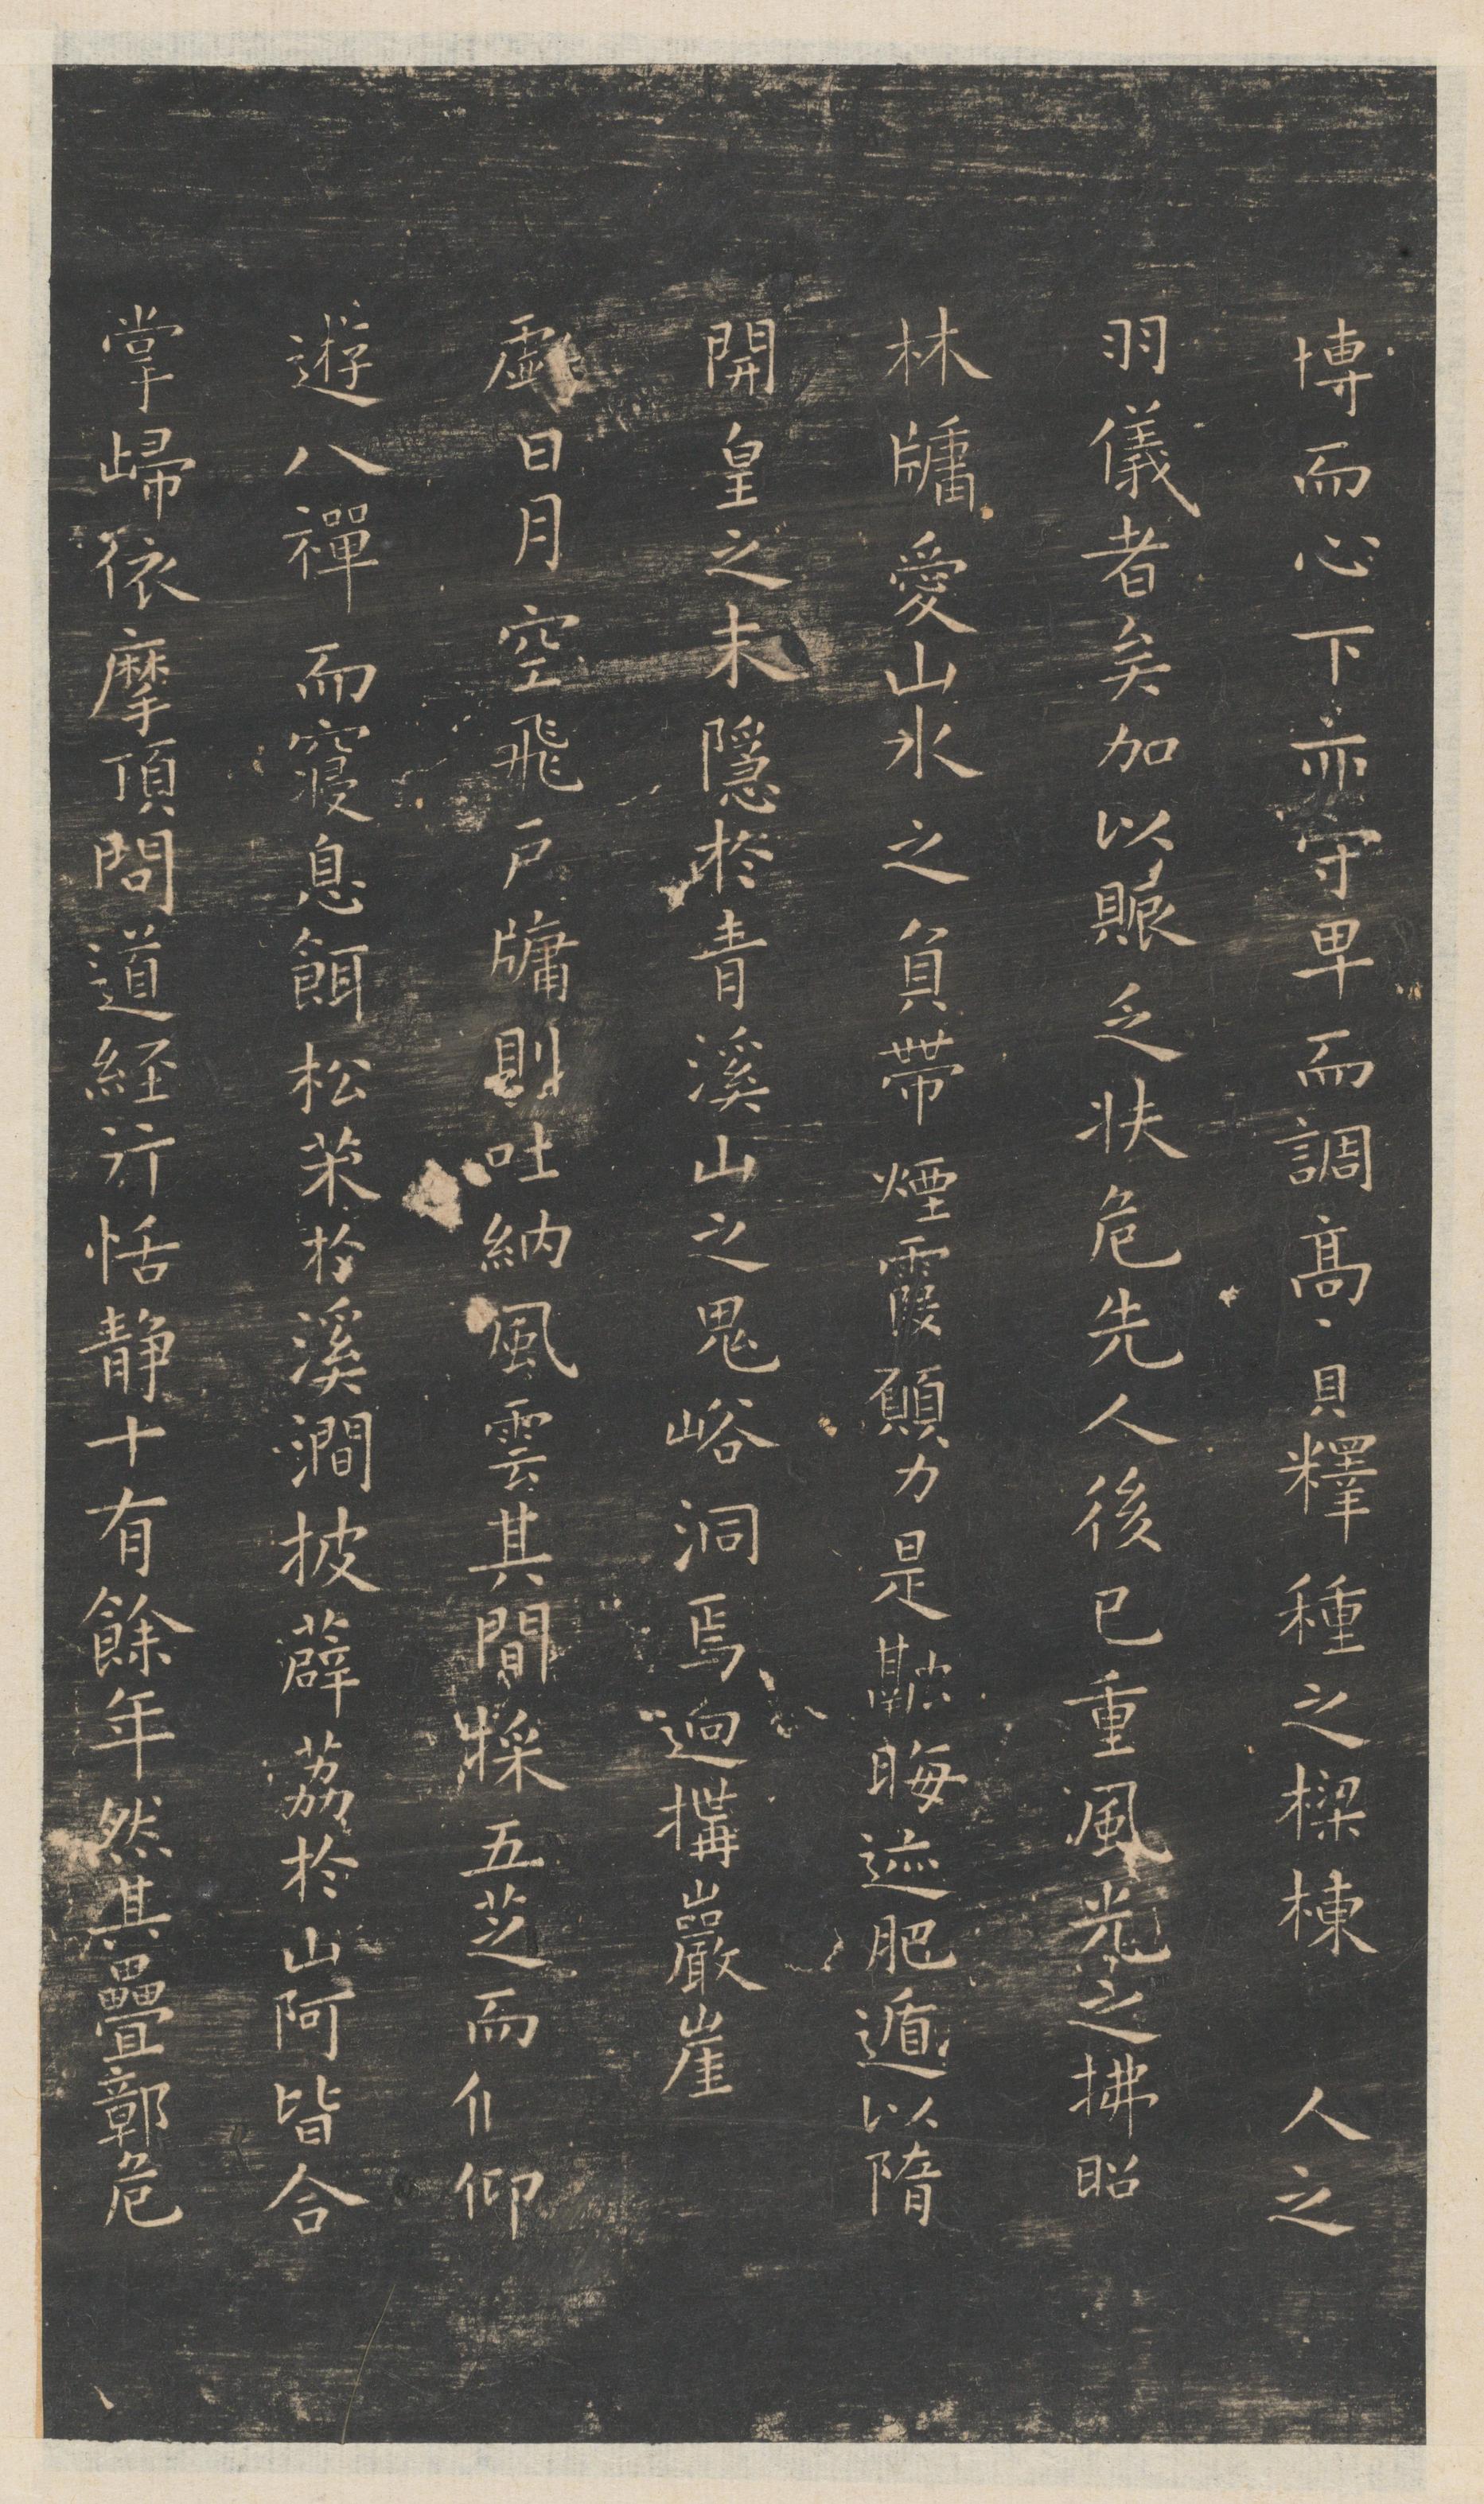 博而心下亦守卑而調高寔釋種之樑棟人之
羽儀者矣加以賑乏扶危先人後已重風光之拂照
林牖愛山水之負帶煙霞願力是融晦迹肥遁以隋
開皇之末隱於青溪山之鬼峪洞焉逈搆巖崖
虛日月空飛戶牖則吐納風雲其間採五芝而偃仰
遊八禪而寢息餌松菜於溪澗披薜荔於山阿皆合
掌歸依摩頂問道経行恬静十有餘年然其疊鄣危